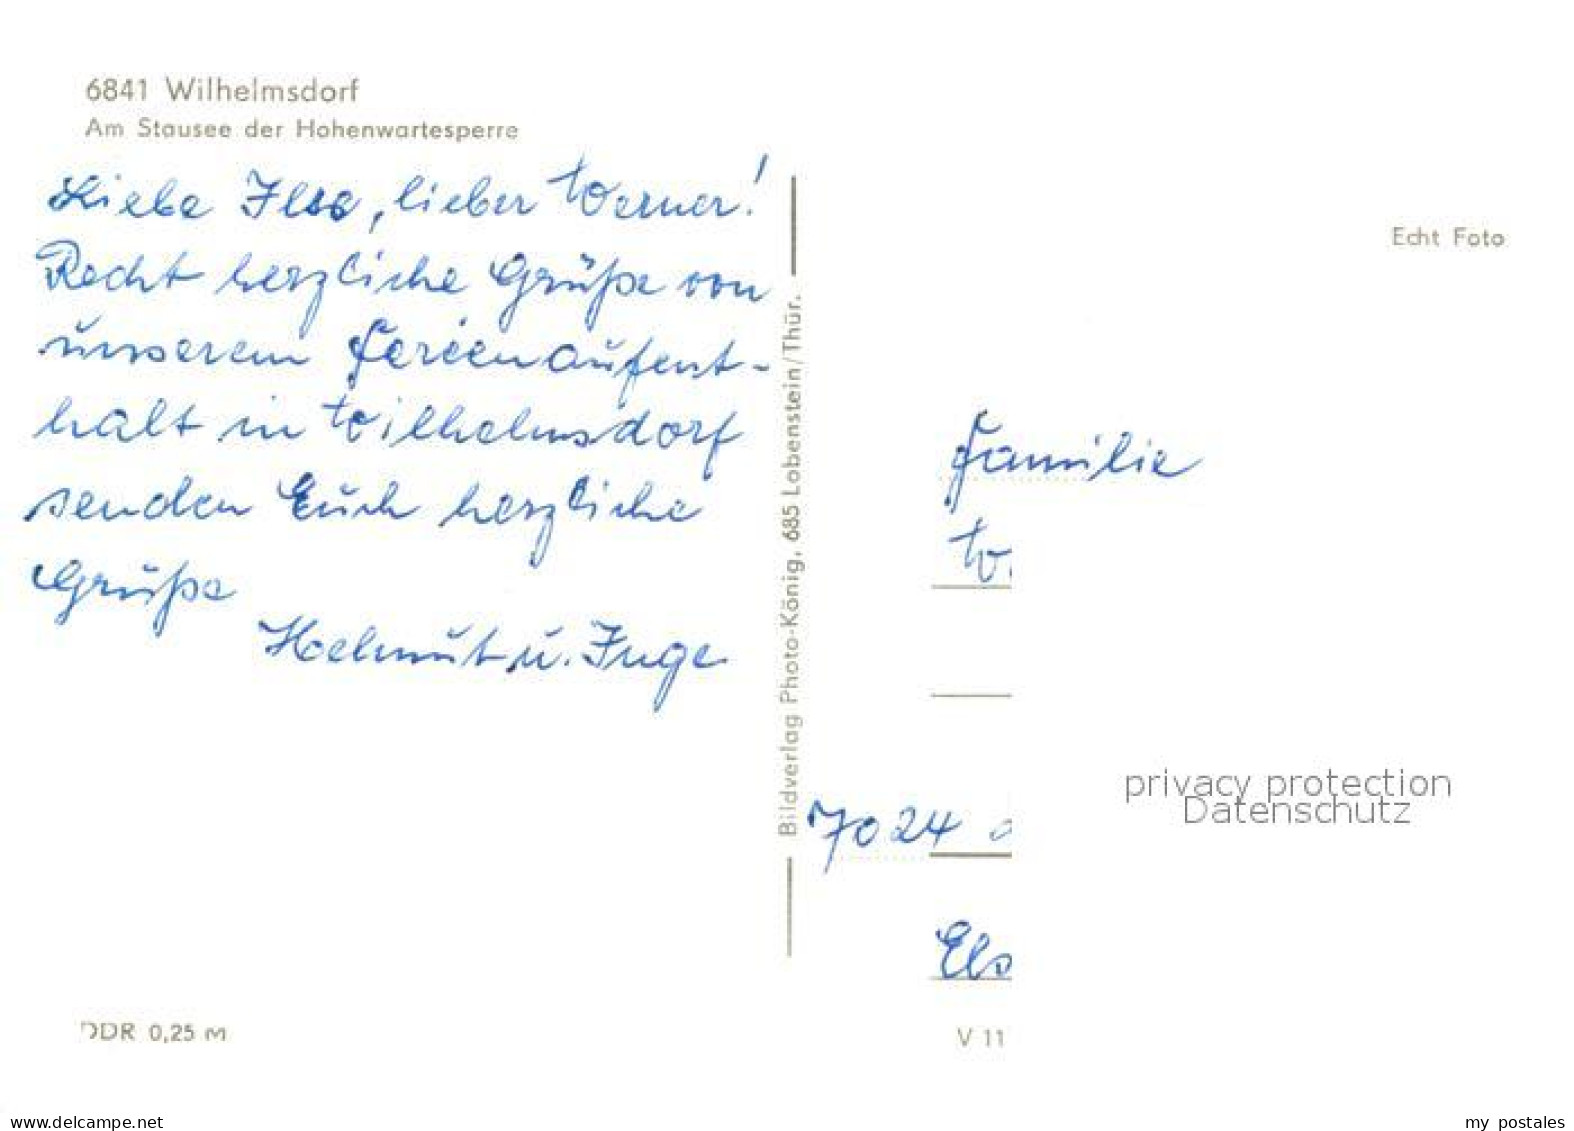 6841 Wilhelmsdorf
Am Stausee der Hohenwartesperre
Liebe Ilse, lieber Werner!
Recht herzliche Grüße von
unserem Ferienaufent-
halt in Wilhelmsdorf
senden Euch herzliche
Grüße
Helmut u. Inge
DDR 0,25 M
Bildverlag Photo-König, 685 Lobenstein/Thür.
Echt Foto
Familie
W.
7024
Els
V 11
privacy protection
Datenschutz
www.delcampe.net
my postales